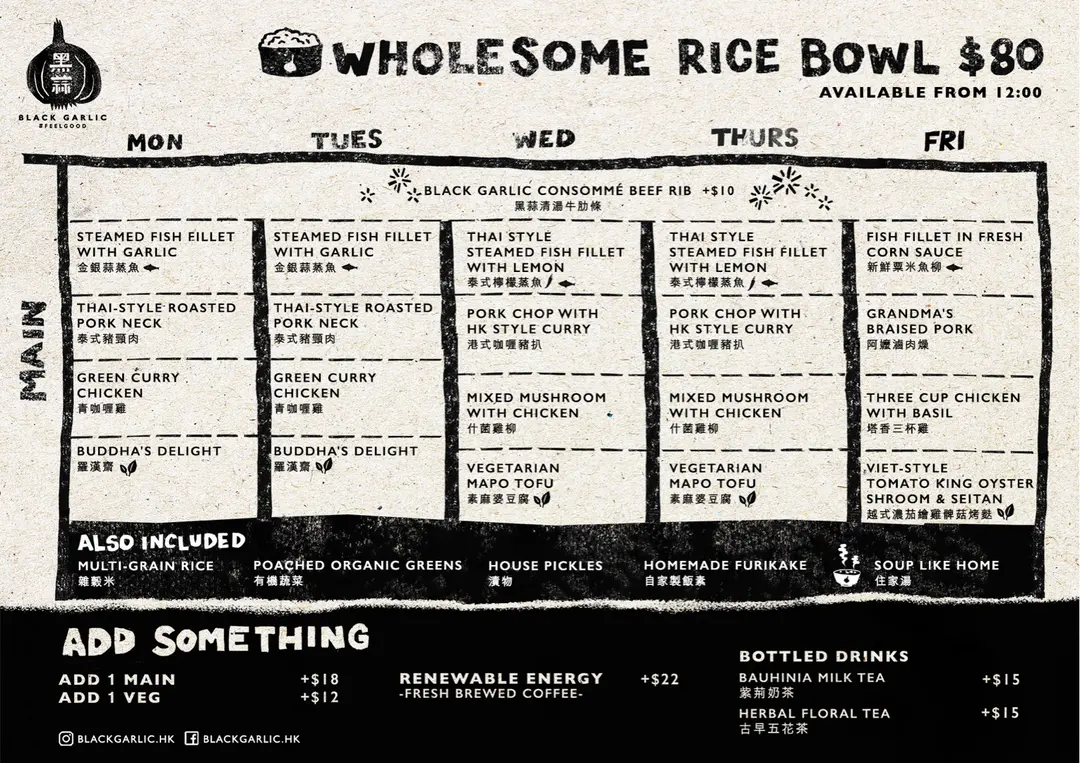 黑蒜
BLACK GARLIC
#FEELGOOD
WHOLESOME RICE BOWL $80
AVAILABLE FROM 12:00
MON
TUES
WED
THURS
FRI
MAIN
BLACK GARLIC CONSOMMÉ BEEF RIB +$10
黑蒜清湯牛肋條
STEAMED FISH FILLET
WITH GARLIC
金銀蒜蒸魚
THAI-STYLE ROASTED
PORK NECK
泰式豬頸肉
GREEN CURRY
CHICKEN
青咖喱雞
BUDDHA'S DELIGHT
羅漢齋
STEAMED FISH FILLET
WITH GARLIC
金銀蒜蒸魚
THAI-STYLE ROASTED
PORK NECK
泰式豬頸肉
GREEN CURRY
CHICKEN
青咖喱雞
BUDDHA'S DELIGHT
羅漢齋
THAI STYLE
STEAMED FISH FILLET
WITH LEMON
泰式檸檬蒸魚
PORK CHOP WITH
HK STYLE CURRY
港式咖喱豬扒
MIXED MUSHROOM
WITH CHICKEN
什菌雞柳
VEGETARIAN
MAPO TOFU
素麻婆豆腐
THAI STYLE
STEAMED FISH FILLET
WITH LEMON
泰式檸檬蒸魚
PORK CHOP WITH
HK STYLE CURRY
港式咖喱豬扒
MIXED MUSHROOM
WITH CHICKEN
什菌雞柳
VEGETARIAN
MAPO TOFU
素麻婆豆腐
FISH FILLET IN FRESH
CORN SAUCE
新鮮粟米魚柳
GRANDMA'S
BRAISED PORK
阿嬤滷肉燥
THREE CUP CHICKEN
WITH BASIL
塔香三杯雞
VIET-STYLE
TOMATO KING OYSTER
SHROOM & SEITAN
越式濃茄繪雞髀菇烤麩
ALSO INCLUDED
MULTI-GRAIN RICE
雜穀米
POACHED ORGANIC GREENS
有機蔬菜
HOUSE PICKLES
漬物
HOMEMADE FURIKAKE
自家製飯素
SOUP LIKE HOME
住家湯
ADD SOMETHING
ADD 1 MAIN +$18
ADD 1 VEG +$12
RENEWABLE ENERGY +$22
-FRESH BREWED COFFEE-
BOTTLED DRINKS
BAUHINIA MILK TEA +$15
紫荊奶茶
HERBAL FLORAL TEA +$15
古早五花茶
BLACKGARLIC.HK
BLACKGARLIC.HK